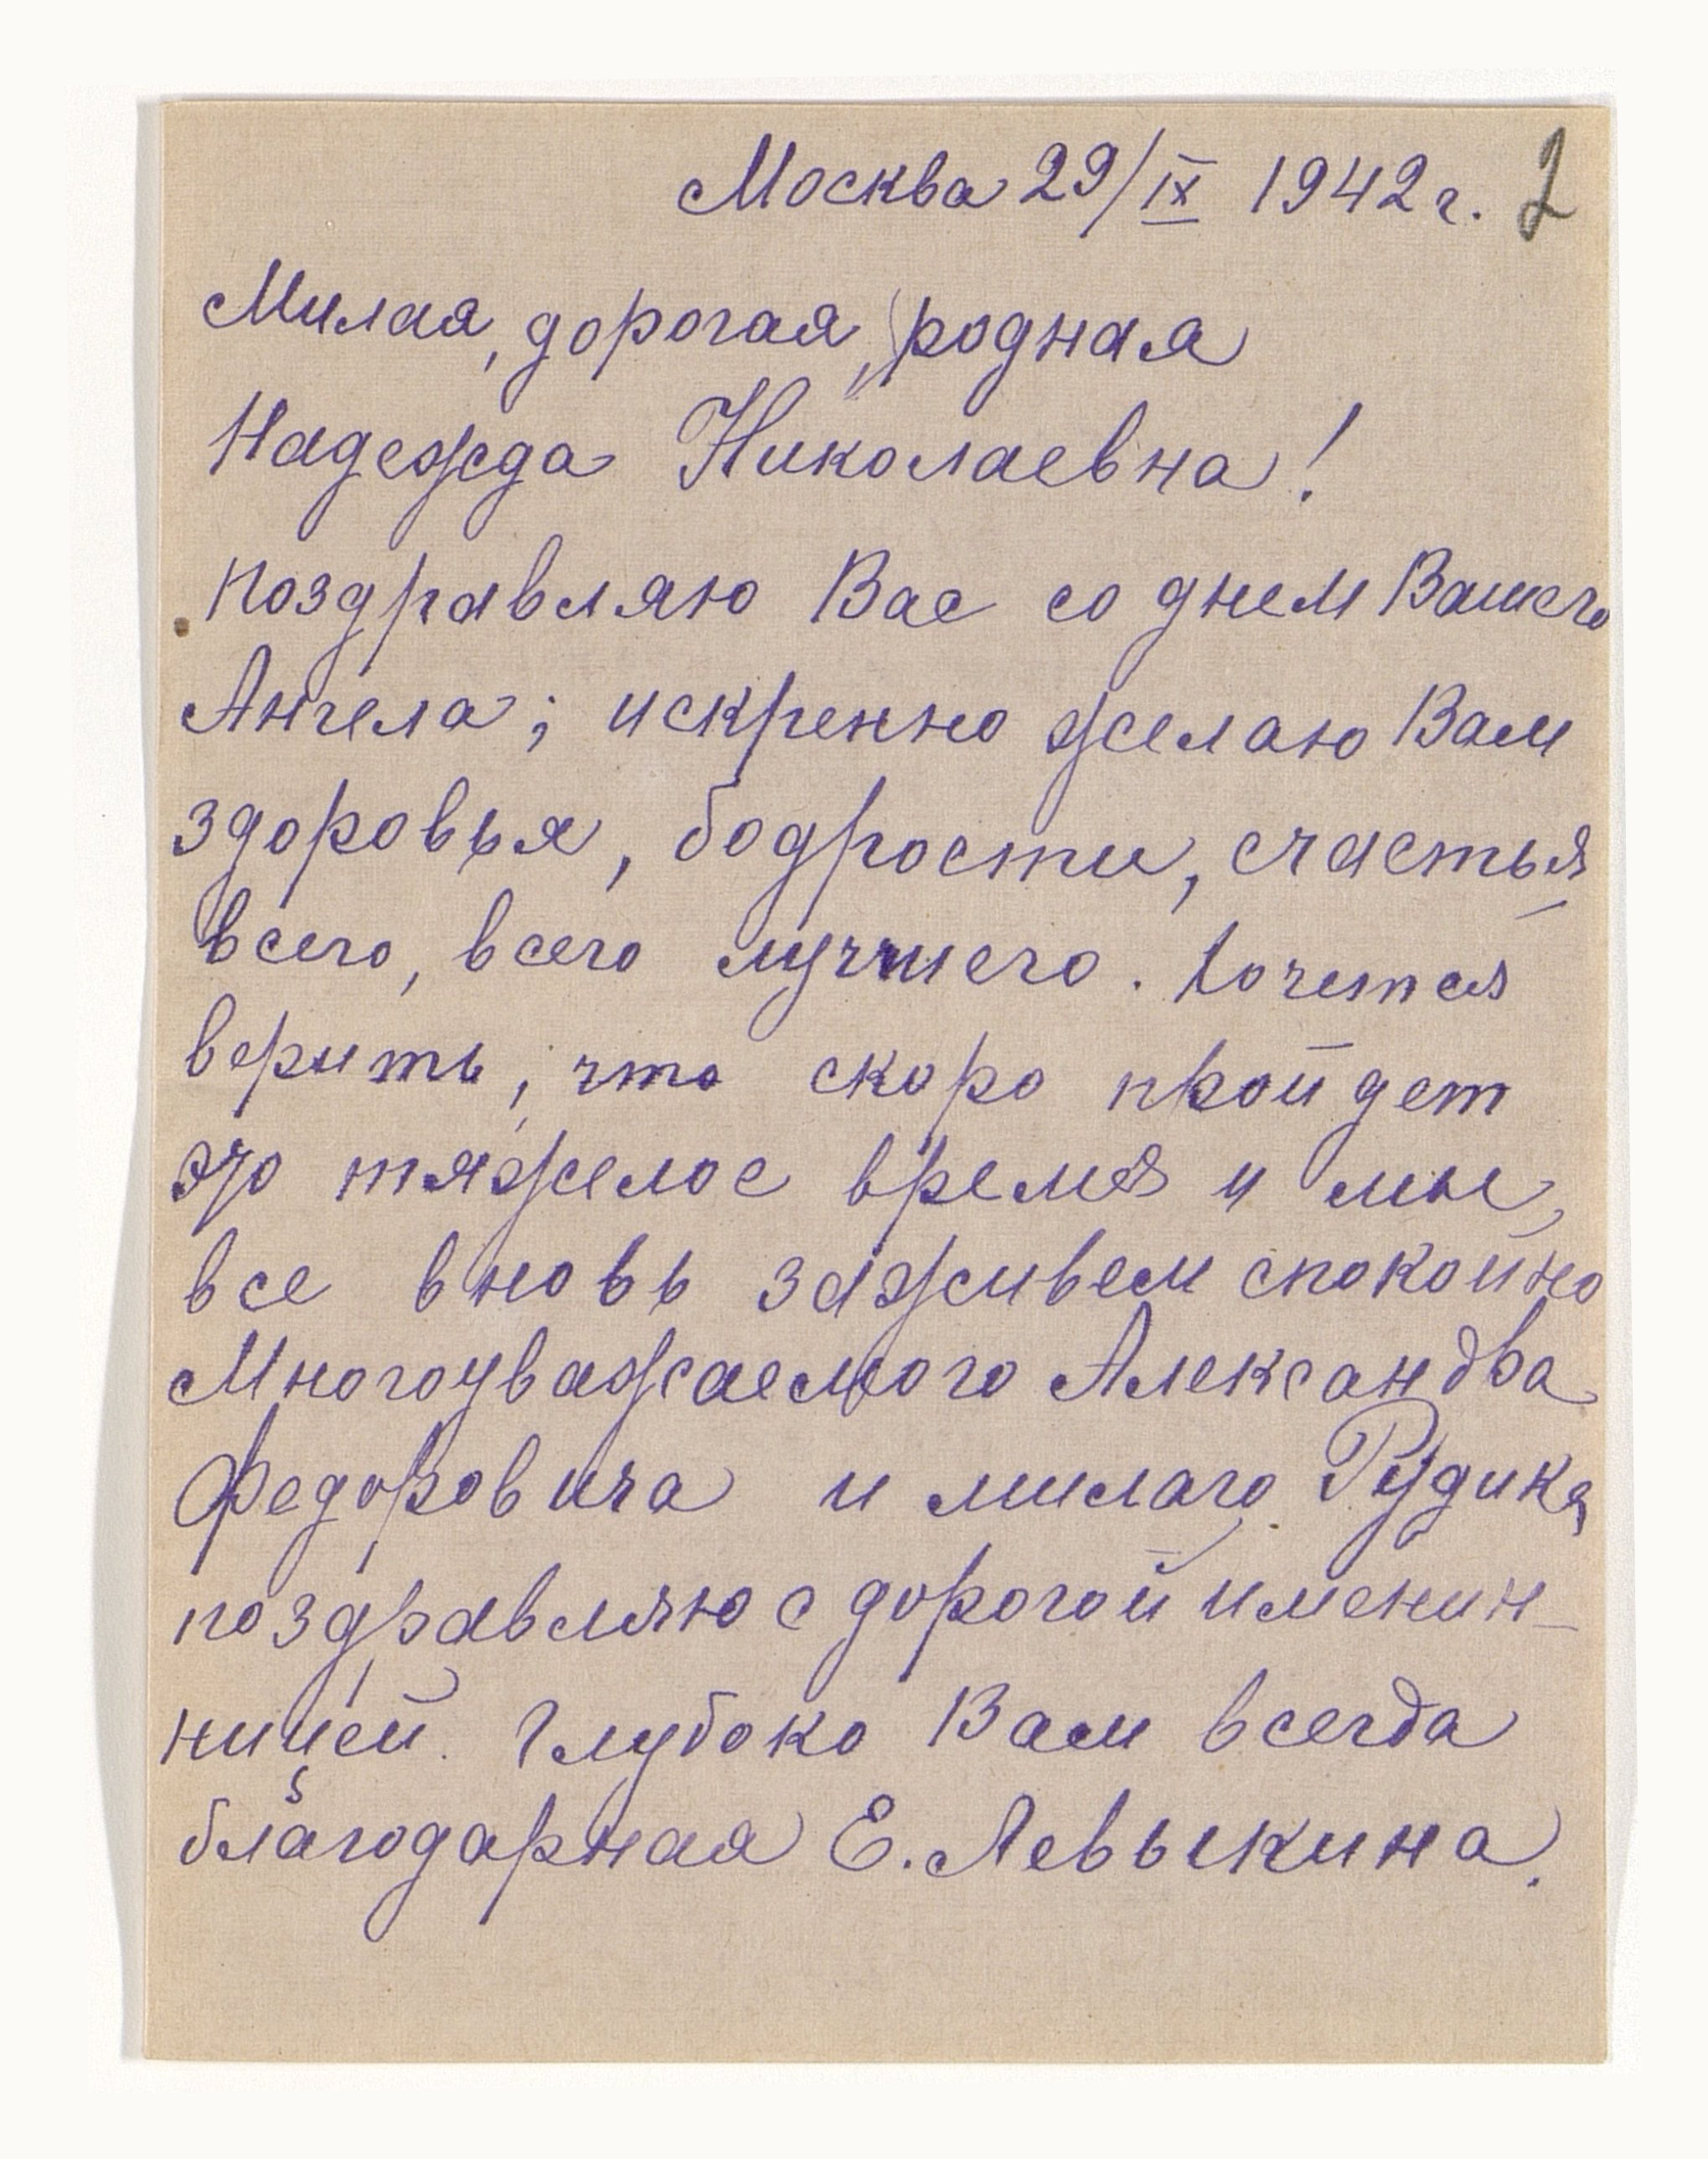 Москва 29/IX 1942 г. 2
Милая, дорогая, родная
Надежда Николаевна!
Поздравляю Вас со днем Вашего
Ангела; искренно желаю Вам
здоровья, бодрости, счастья
всего, всего лучшего. Хочется
верить, что скоро пройдет
это тяжелое время и мы,
все вновь заживем спокойно
Многоуважаемого Александра
Федоровича и милаго Рудика
поздравляю с дорогой именин-
ницей. Глубоко Вам всегда
благодарная Е. Левыкина.